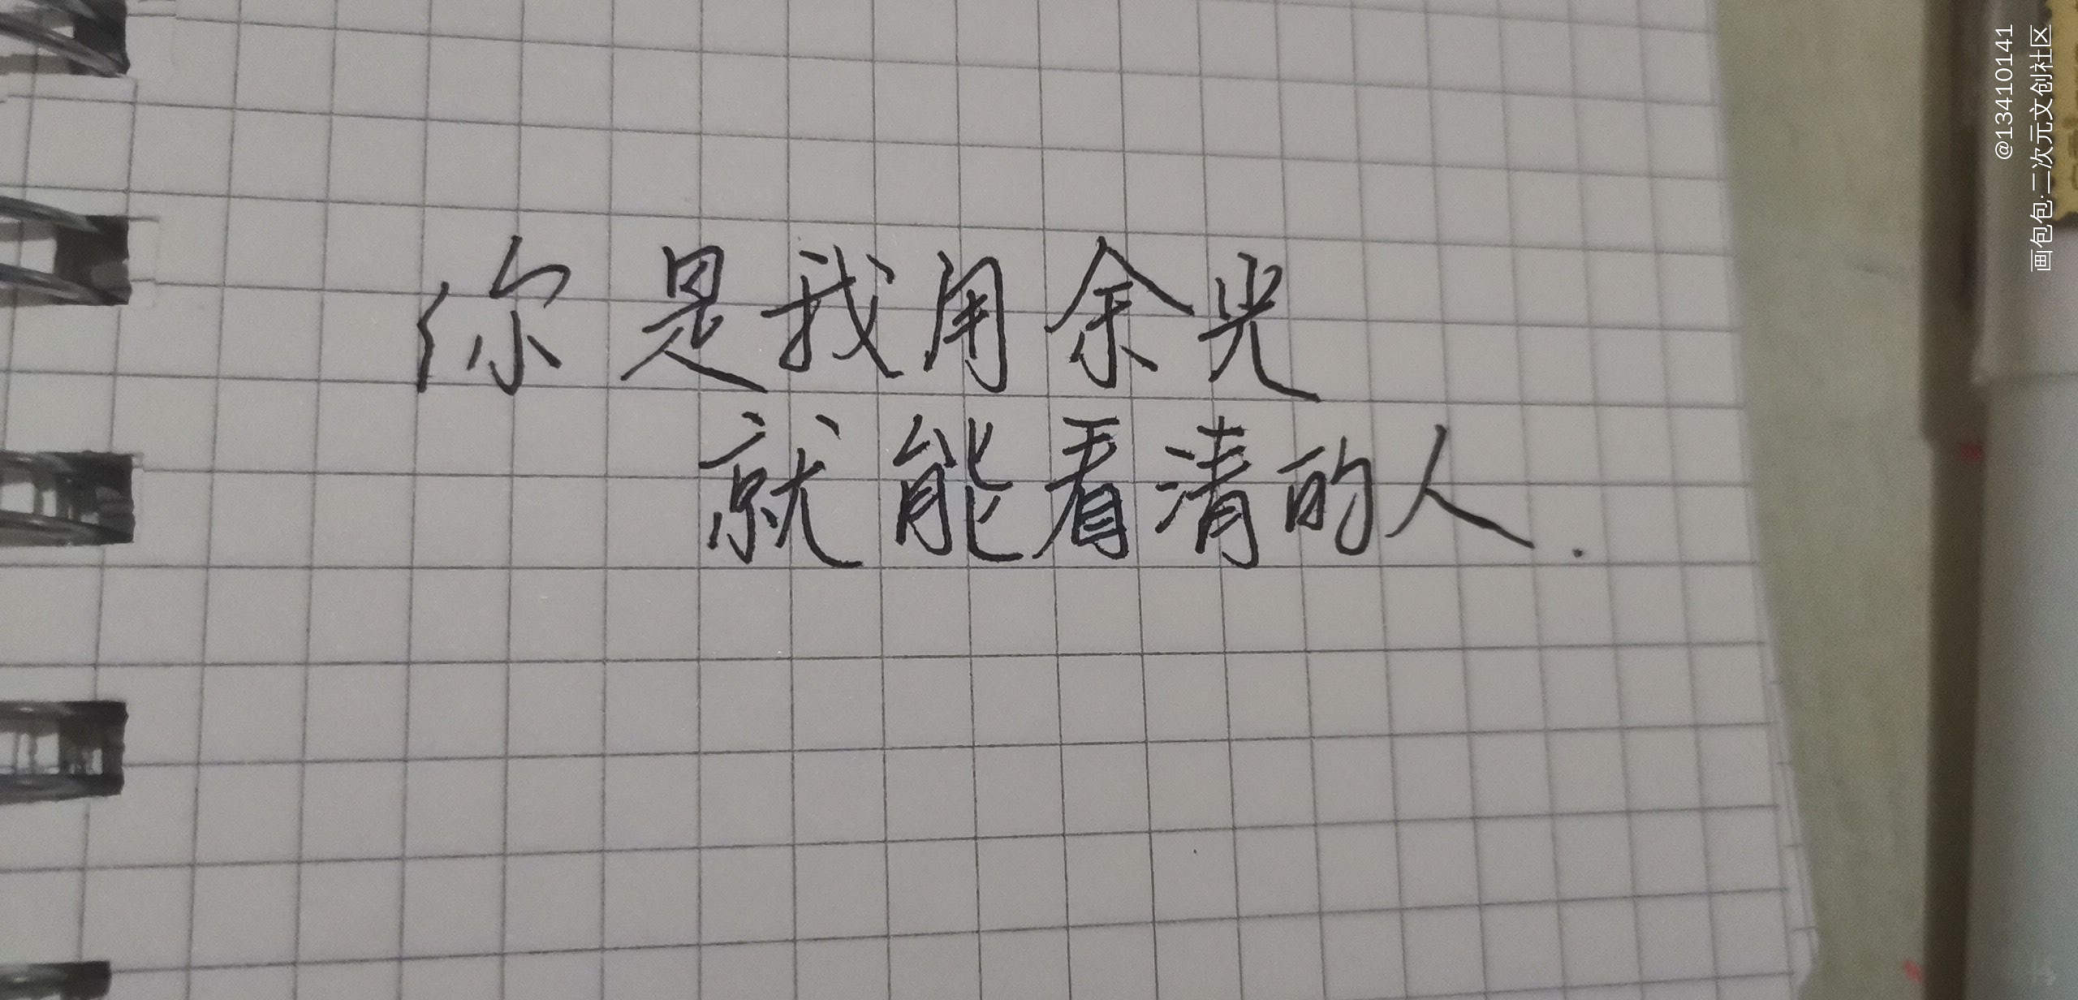 你是我用余光
就能看清的人.
@13410141
画包包·二次元文创社区